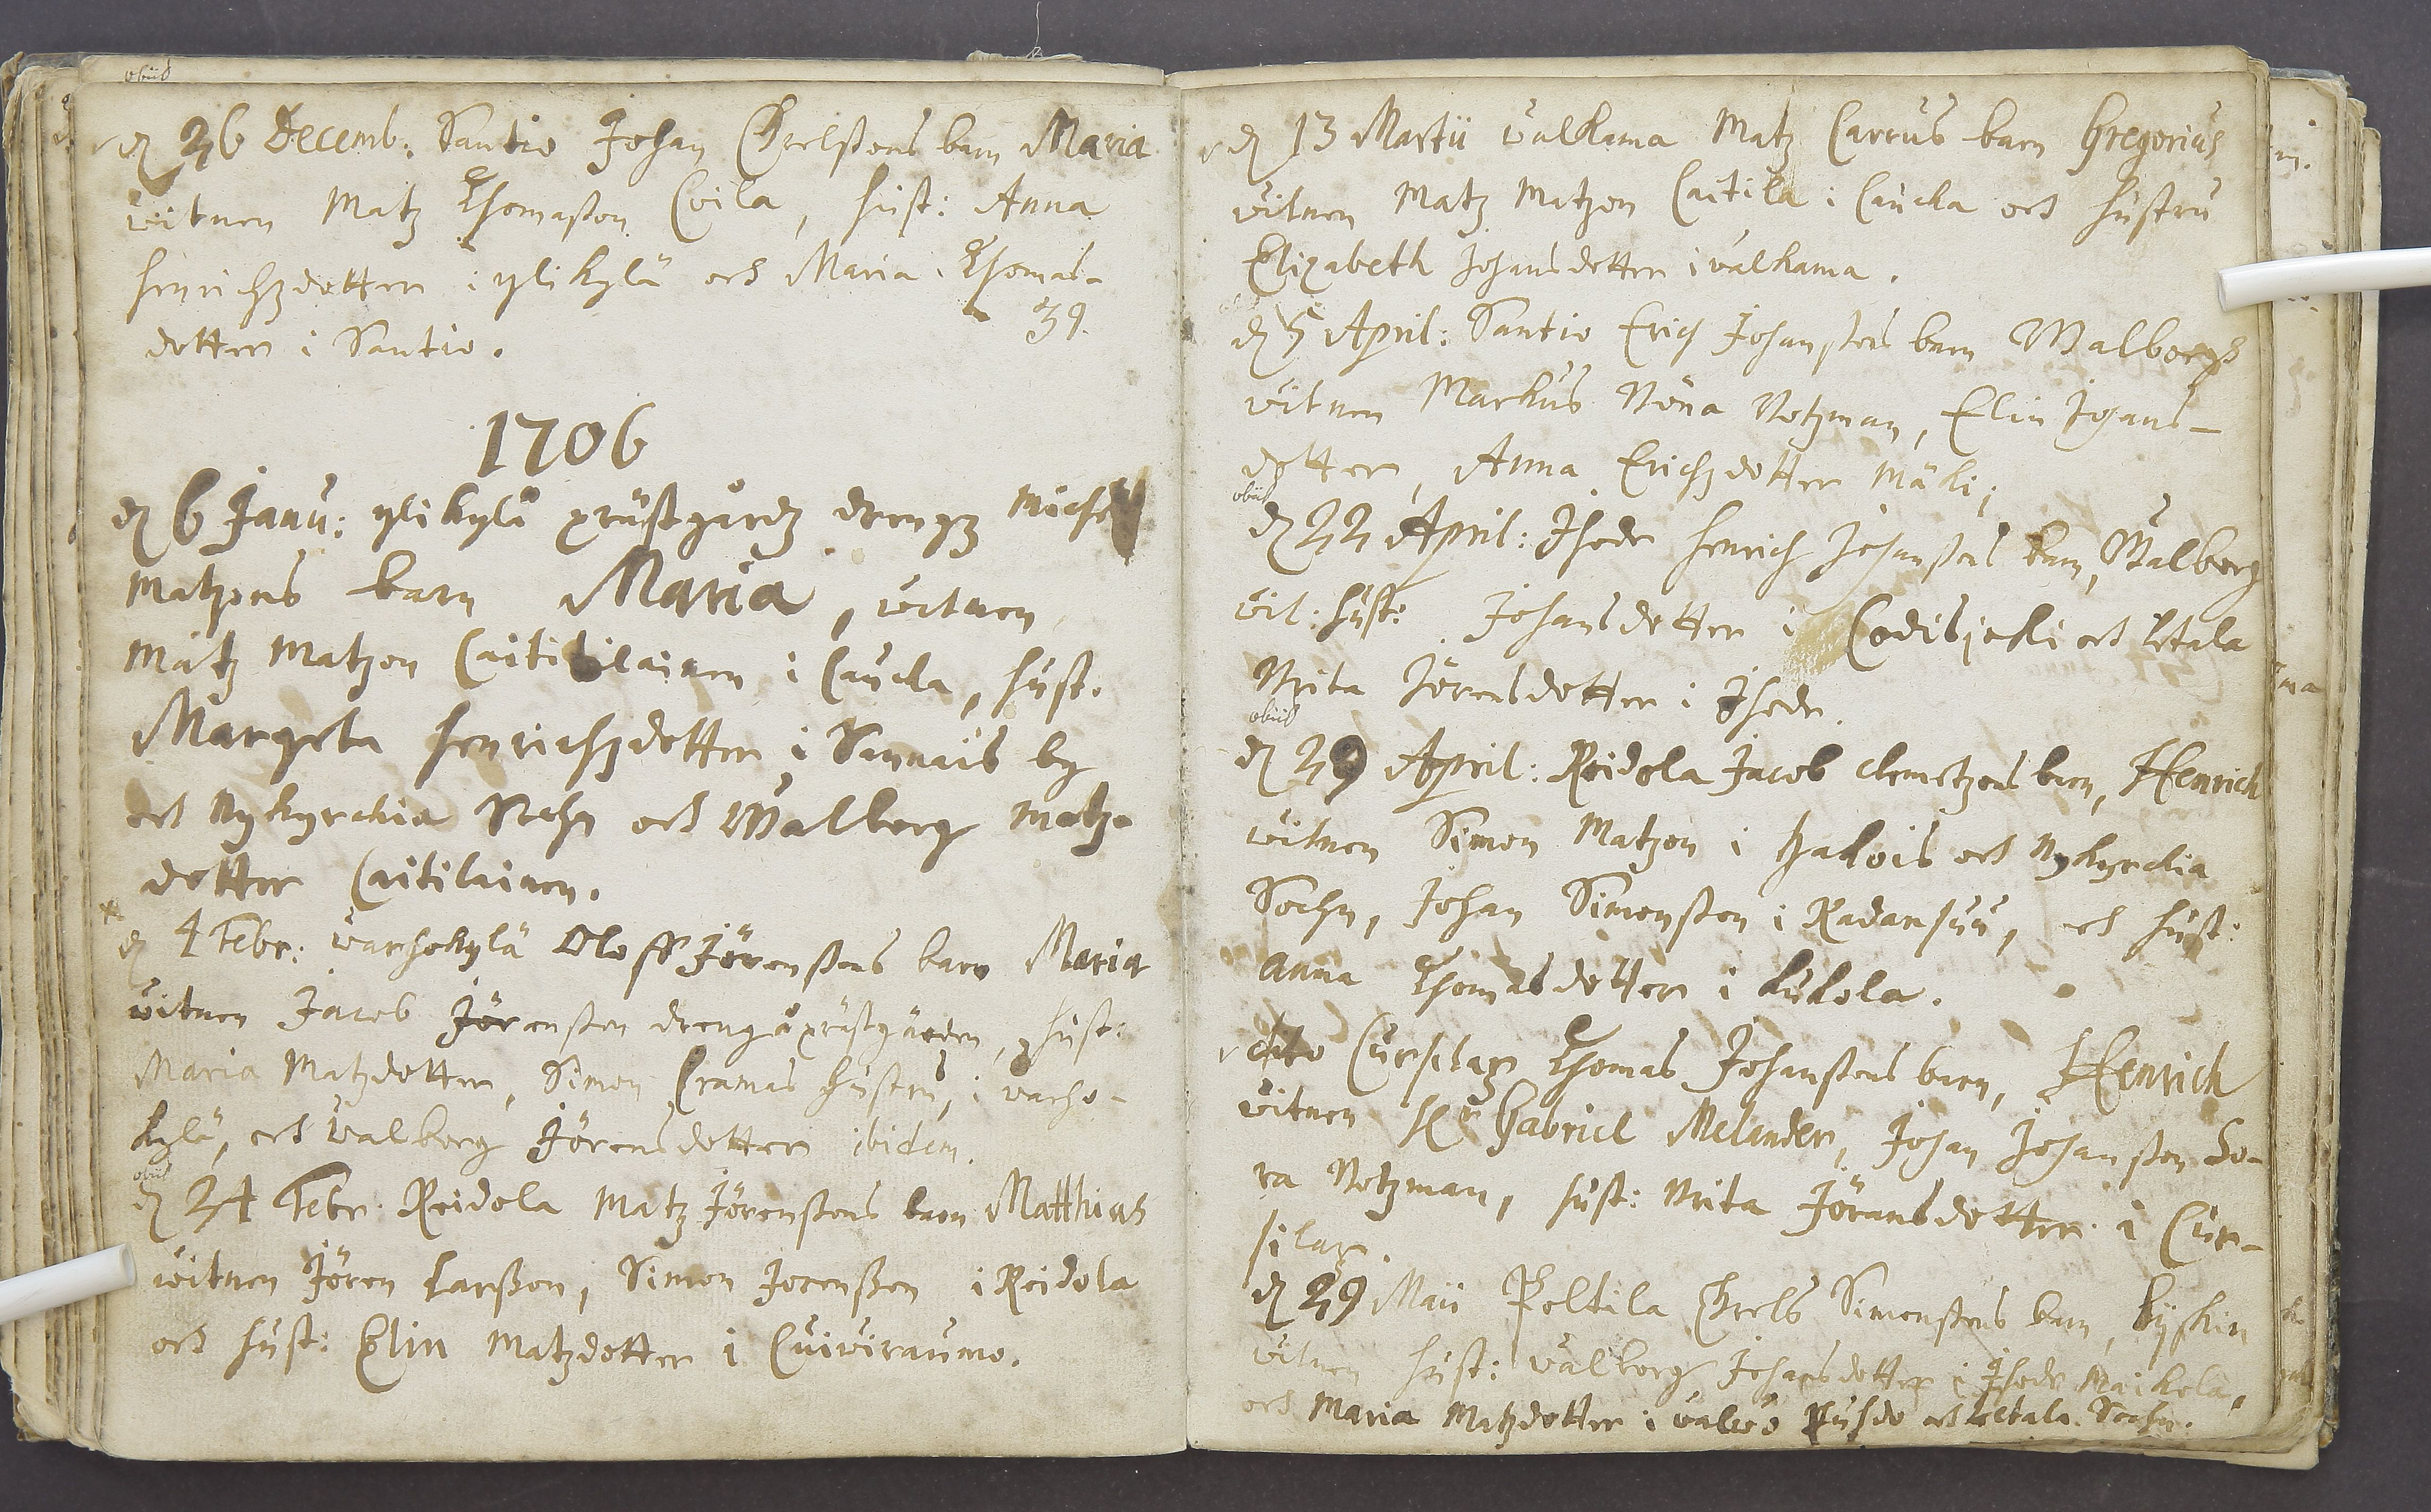 obiit
d 26 Decemb: Santio Johan Grelssons barn Maria
witnen Matz Thomasson Coila, hust: Anna
Henrichzdotter i ylikylä och Maria Thomas-
dotter i Santio.
39.
1706
d 6 Janu: ylikylä prästgårdz drengz Michel
Matzons barn Maria, witnen
Matz Matzon Caititilainen i Caucla, hust.
Margeta Henrichzdotter i Sannais by
och Nykyrckia Sochn och Walborg Matz-
dotter Caitilainen.
d 4 Febr: warhokylä Oloff Jörenssons barn Maria
witnen Jacob Jörensson dreng å prästgården, hust:
Maria Matzdotter, Simon Cramas hustru, i warho-
kylä, och walborg Jörensdotter ibidem.
obiit
d 24 Febr. Reidola Matz Jörenssons barn Matthias
witnen Jören Larsson, Simon Jörensson i Reidola
och hust: Elin Matzdotter i Cuiwiraumo.
d 13 Martii walkama Matz Carrus barn Gregorius
witnen Matz Matzon Caitila i Caucka och hustru
Elizabeth Johansdotter i walkama.
d 5 April: Santio Erich Johanssons barn Walborgh
witnen Markus Nötzman, Elin Johans-
dotter, Anna Erichzdotter Mäki;
obiit
d 22 April: Ihode Henrich Johanssons barn, Walborg
wit: hust: Johansdotter i Codisjoki och Letala
Brita Jörensdotter i Ihode.
obiit
d 29 April: Reidola Jacob Clemetzons barn, Henrich
witnen Simon Matzon i halois och Nykyrckia
Sochn, Johan Simonsson i Radansuu, och hust:
Anna Thomasdotter i kukola.
dito Cursilax Thomas Johanssons barn, Henrich
witnen Hr Gabriel Melander, Johan Johansson So-
ra Notzman, hust: Brita Jöransdotter i Cur-
silax.
d 29 Maii Peltila Grels Simonssons barn,
witnen hust: walborg Johansdotter i Ihode Maikola,
och Maria Matzdotter i walwo Puhdo och Letala Sochn.